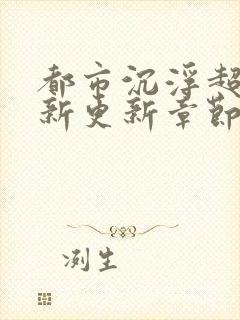 都市沉浮超
新更新章節
冽生